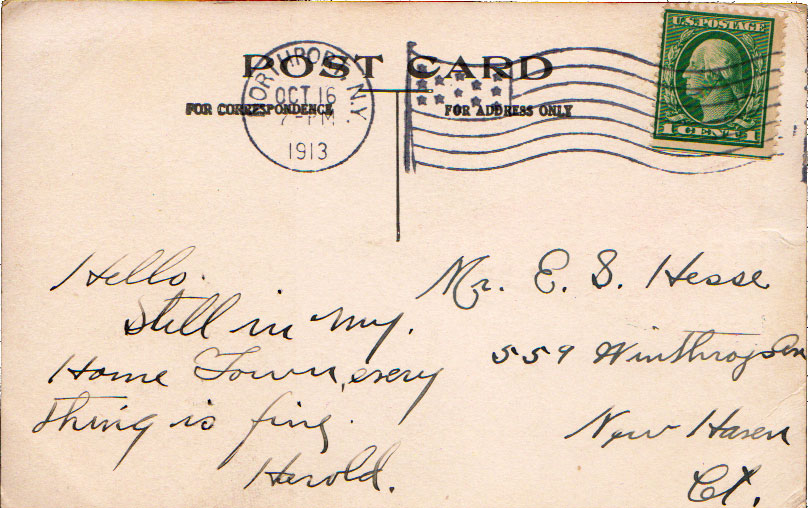 POST CARD
FOR CORRESPONDENCE
FOR ADDRESS ONLY
NORTHPORT N.Y.
OCT 16
7-PM
1913
U.S. POSTAGE
1 CENT 1
Hello.
Still in my.
Home Town, every
thing is fine.
Harold.
Mr. E. S. Hesse
559 Winthrop Ave
New Haven
Ct.